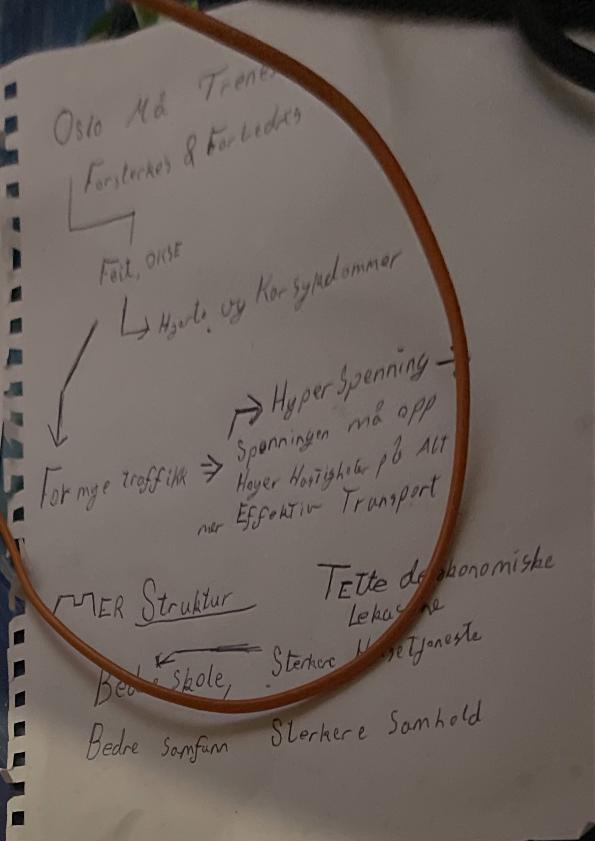 Oslo Må Trenes
Forsterkes & Forbedres
Feit, OKSE
Hjerte og Kar sykdommer
Hyper Spenning
For mye traffikk
Spenningen må opp
Høyer Hastigheter på Alt
mer Effektiv Transport
MER Struktur
Tette de økonomiske
Lekasjene
Bedre skole,
Sterkere
Bedre samfunn
Sterkere Samhold